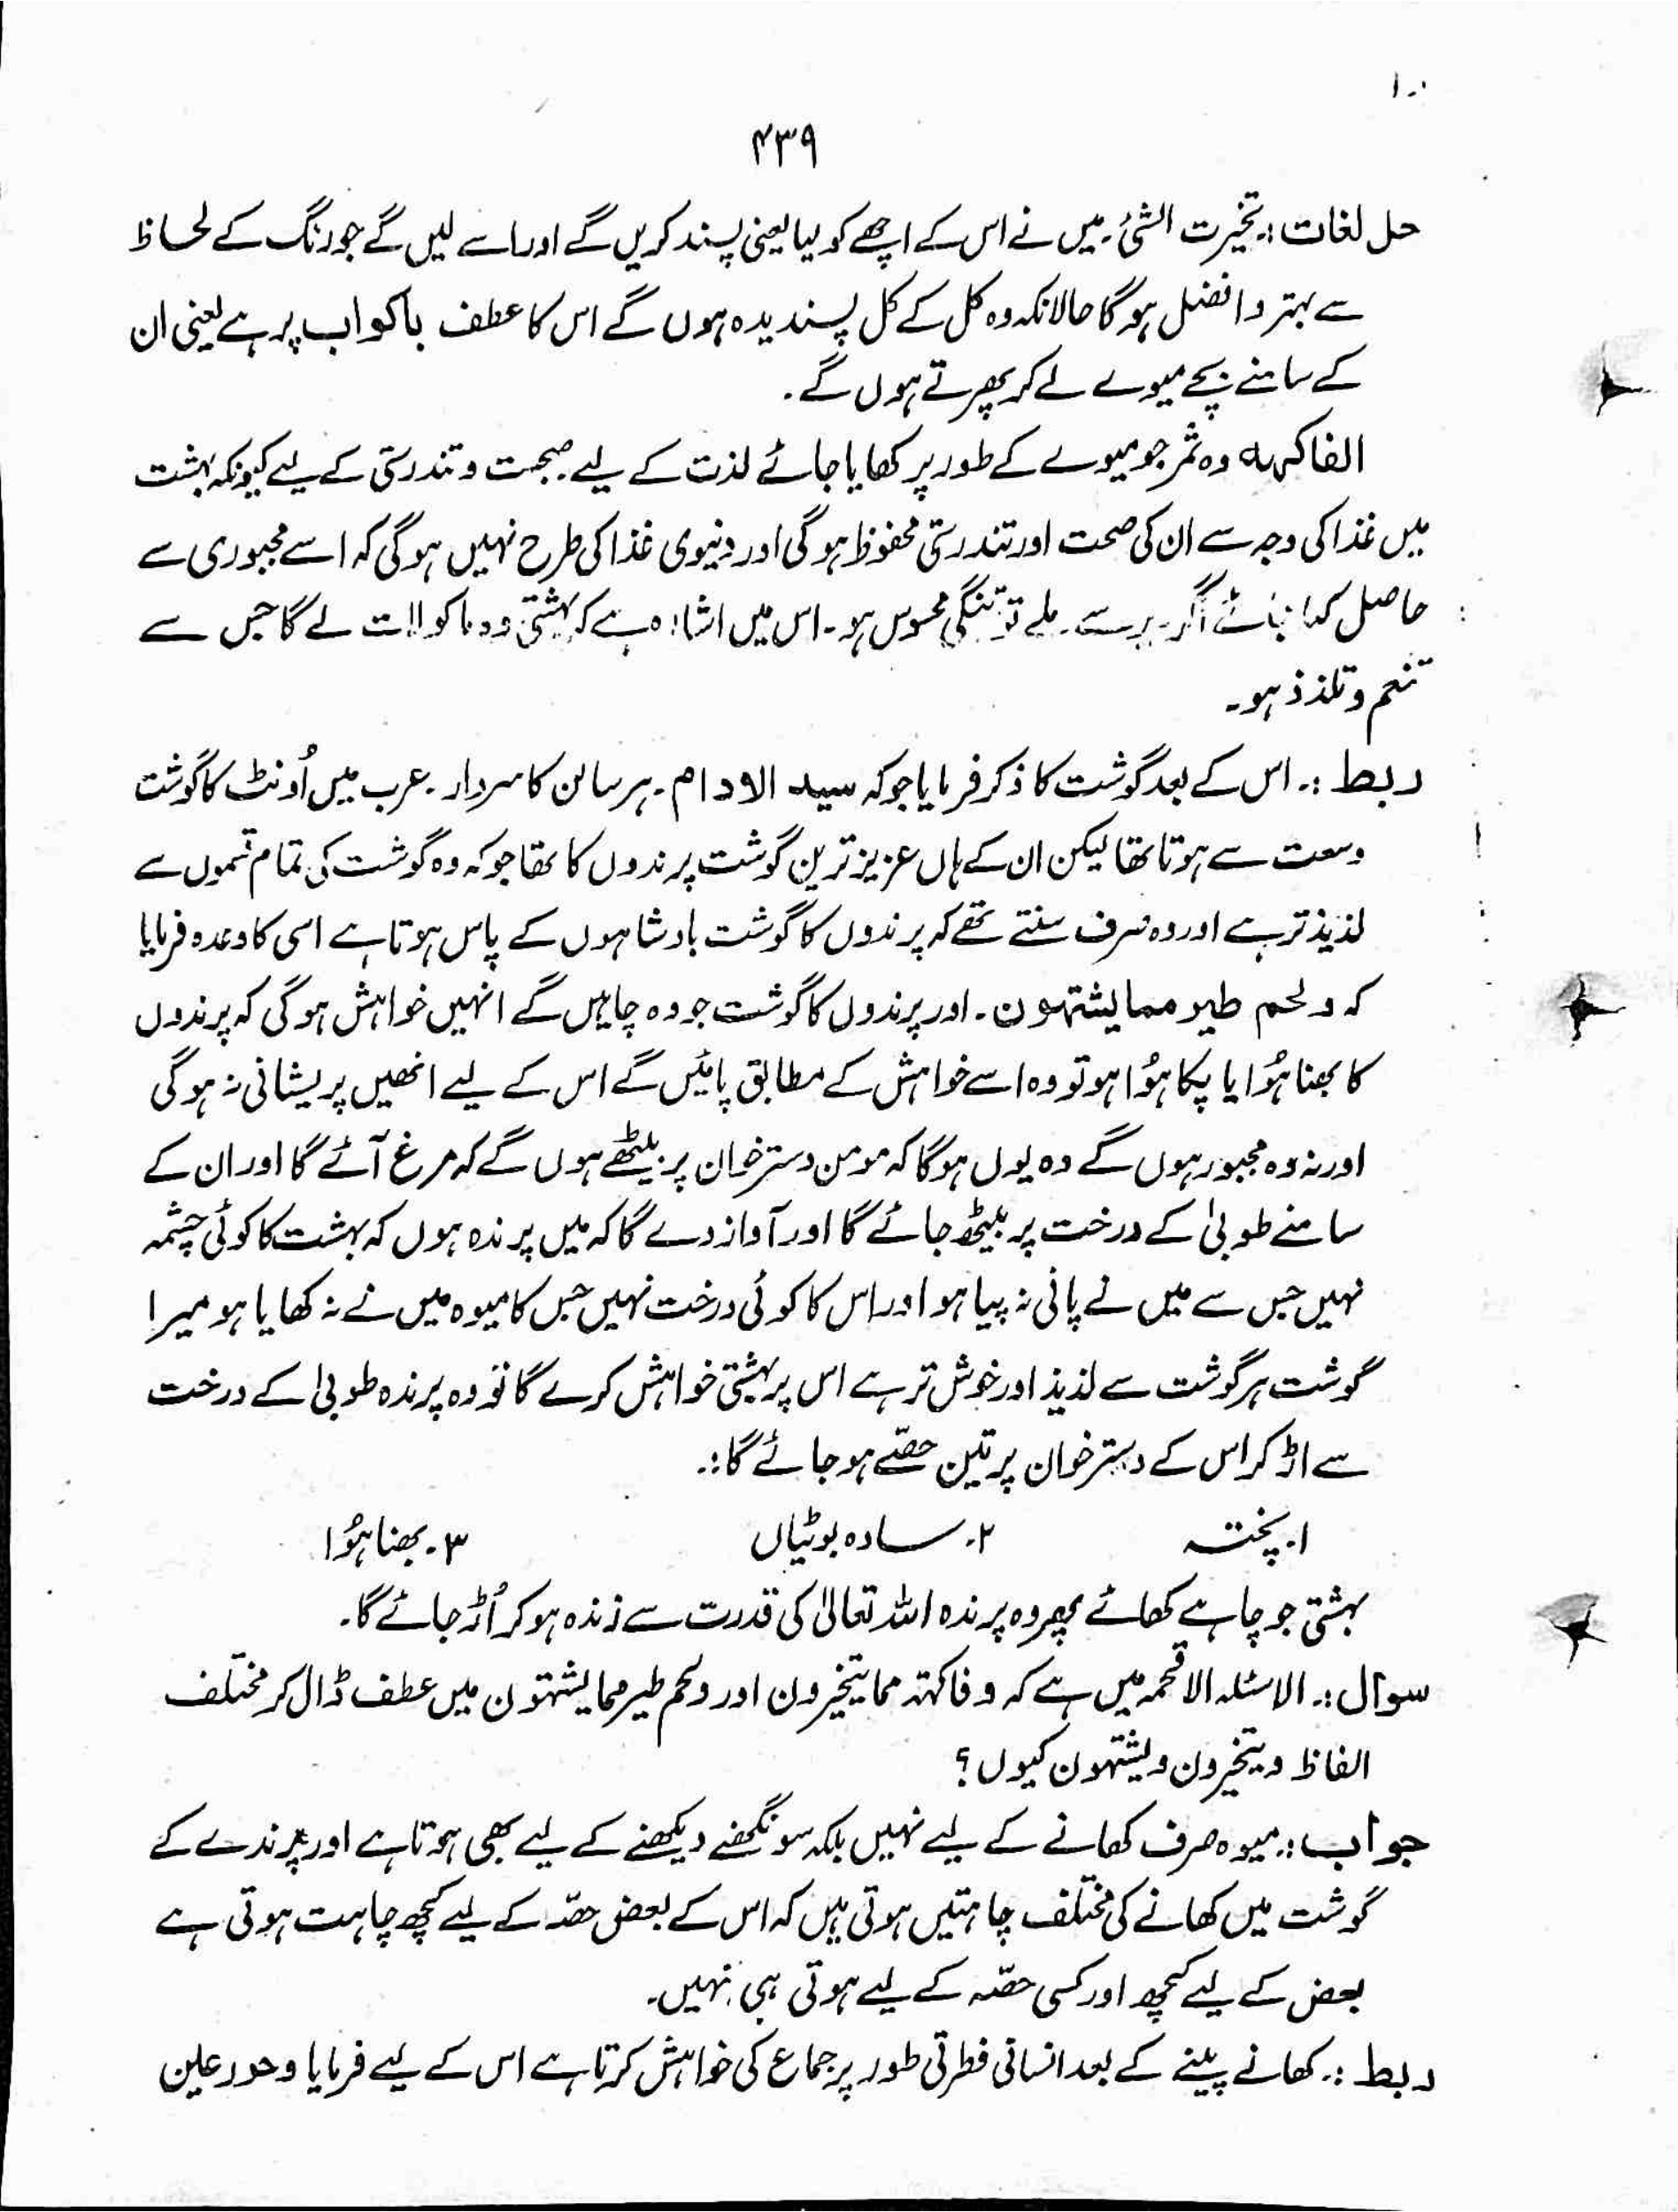 ۴۳۹
حل لغات :۔ تخیرت الشئ۔ میں نے اس کے اچھے کو لیا یعنی پسند کریں گے اور اسے لیں گے جو رنگ کے لحاظ
سے بہتر و افضل ہو گا حالانکہ وہ کل کے کل پسندیدہ ہوں گے اس کا عطف باکواب پر ہے یعنی ان
کے سامنے بچے میوے لے کر پھرتے ہوں گے۔
الفاکہہ وہ ثمر جو میوے کے طور پر کھایا جائے لذت کے لیے۔ صحت و تندرستی کے لیے کیونکہ بہشت
میں غذا کی وجہ سے ان کی صحت اور تندرستی محفوظ ہو گی اور دنیوی غذا کی طرح نہیں ہو گی کہ اسے مجبوری سے
حاصل کیا جائے اگر ملے تو تنگی محسوس ہو۔ اس میں اشارہ ہے کہ بہشتی وہ ماکولات لے گا جس سے
تنعم و تلذذ ہو۔
ربط :۔ اس کے بعد گوشت کا ذکر فرمایا جو کہ سید الادام۔ ہر سالن کا سردار۔ عرب میں اُونٹ کا گوشت
وسعت سے ہوتا تھا لیکن ان کے ہاں عزیز ترین گوشت پرندوں کا تھا جو کہ وہ گوشت کی تمام قسموں سے
لذیذ تر ہے اور وہ صرف سنتے تھے کہ پرندوں کا گوشت بادشاہوں کے پاس ہوتا ہے اسی کا وعدہ فرمایا
کہ ولحم طیر مما یشتہون۔ اور پرندوں کا گوشت جو وہ چاہیں گے انہیں خواہش ہو گی کہ پرندوں
کا بھنا ہُوا یا پکا ہُوا ہو تو وہ اسے خواہش کے مطابق پائیں گے اس کے لیے انھیں پریشانی نہ ہو گی
اور نہ وہ مجبور ہوں گے وہ یوں ہو گا کہ مومن دسترخوان پر بیٹھے ہوں گے کہ مرغ آئے گا اور ان کے
سامنے طوبیٰ کے درخت پر بیٹھ جائے گا اور آواز دے گا کہ میں پرندہ ہوں کہ بہشت کا کوئی چشمہ
نہیں جس سے میں نے پانی نہ پیا ہو اور اس کا کوئی درخت نہیں جس کا میوہ میں نے نہ کھایا ہو میرا
گوشت ہر گوشت سے لذیذ اور خوش تر ہے اس پر بہشتی خواہش کرے گا تو وہ پرندہ طوبیٰ کے درخت
سے اڑ کر اس کے دسترخوان پر تین حصّے ہو جائے گا :۔
۱۔ پختہ ۲۔ سادہ بوٹیاں ۳۔ بھنا ہُوا
بہشتی جو چاہے کھائے پھر وہ پرندہ اللہ تعالیٰ کی قدرت سے زندہ ہو کر اُڑ جائے گا۔
سوال :۔ الاسئلہ الاقحمہ میں ہے کہ و فاکہتہ مما یتخیرون اور ولحم طیر مما یشتہون میں عطف ڈال کر مختلف
الفاظ و یتخیرون و یشتہون کیوں ؟
جواب :۔ میوہ صرف کھانے کے لیے نہیں بلکہ سونگھنے دیکھنے کے لیے بھی ہوتا ہے اور پرندے کے
گوشت میں کھانے کی مختلف چاہتیں ہوتی ہیں کہ اس کے بعض حصّہ کے لیے کچھ چاہت ہوتی ہے
بعض کے لیے کچھ اور کسی حصّہ کے لیے ہوتی ہی نہیں۔
ربط :۔ کھانے پینے کے بعد انسانی فطرتی طور پر جماع کی خواہش کرتا ہے اس کے لیے فرمایا وحور عین